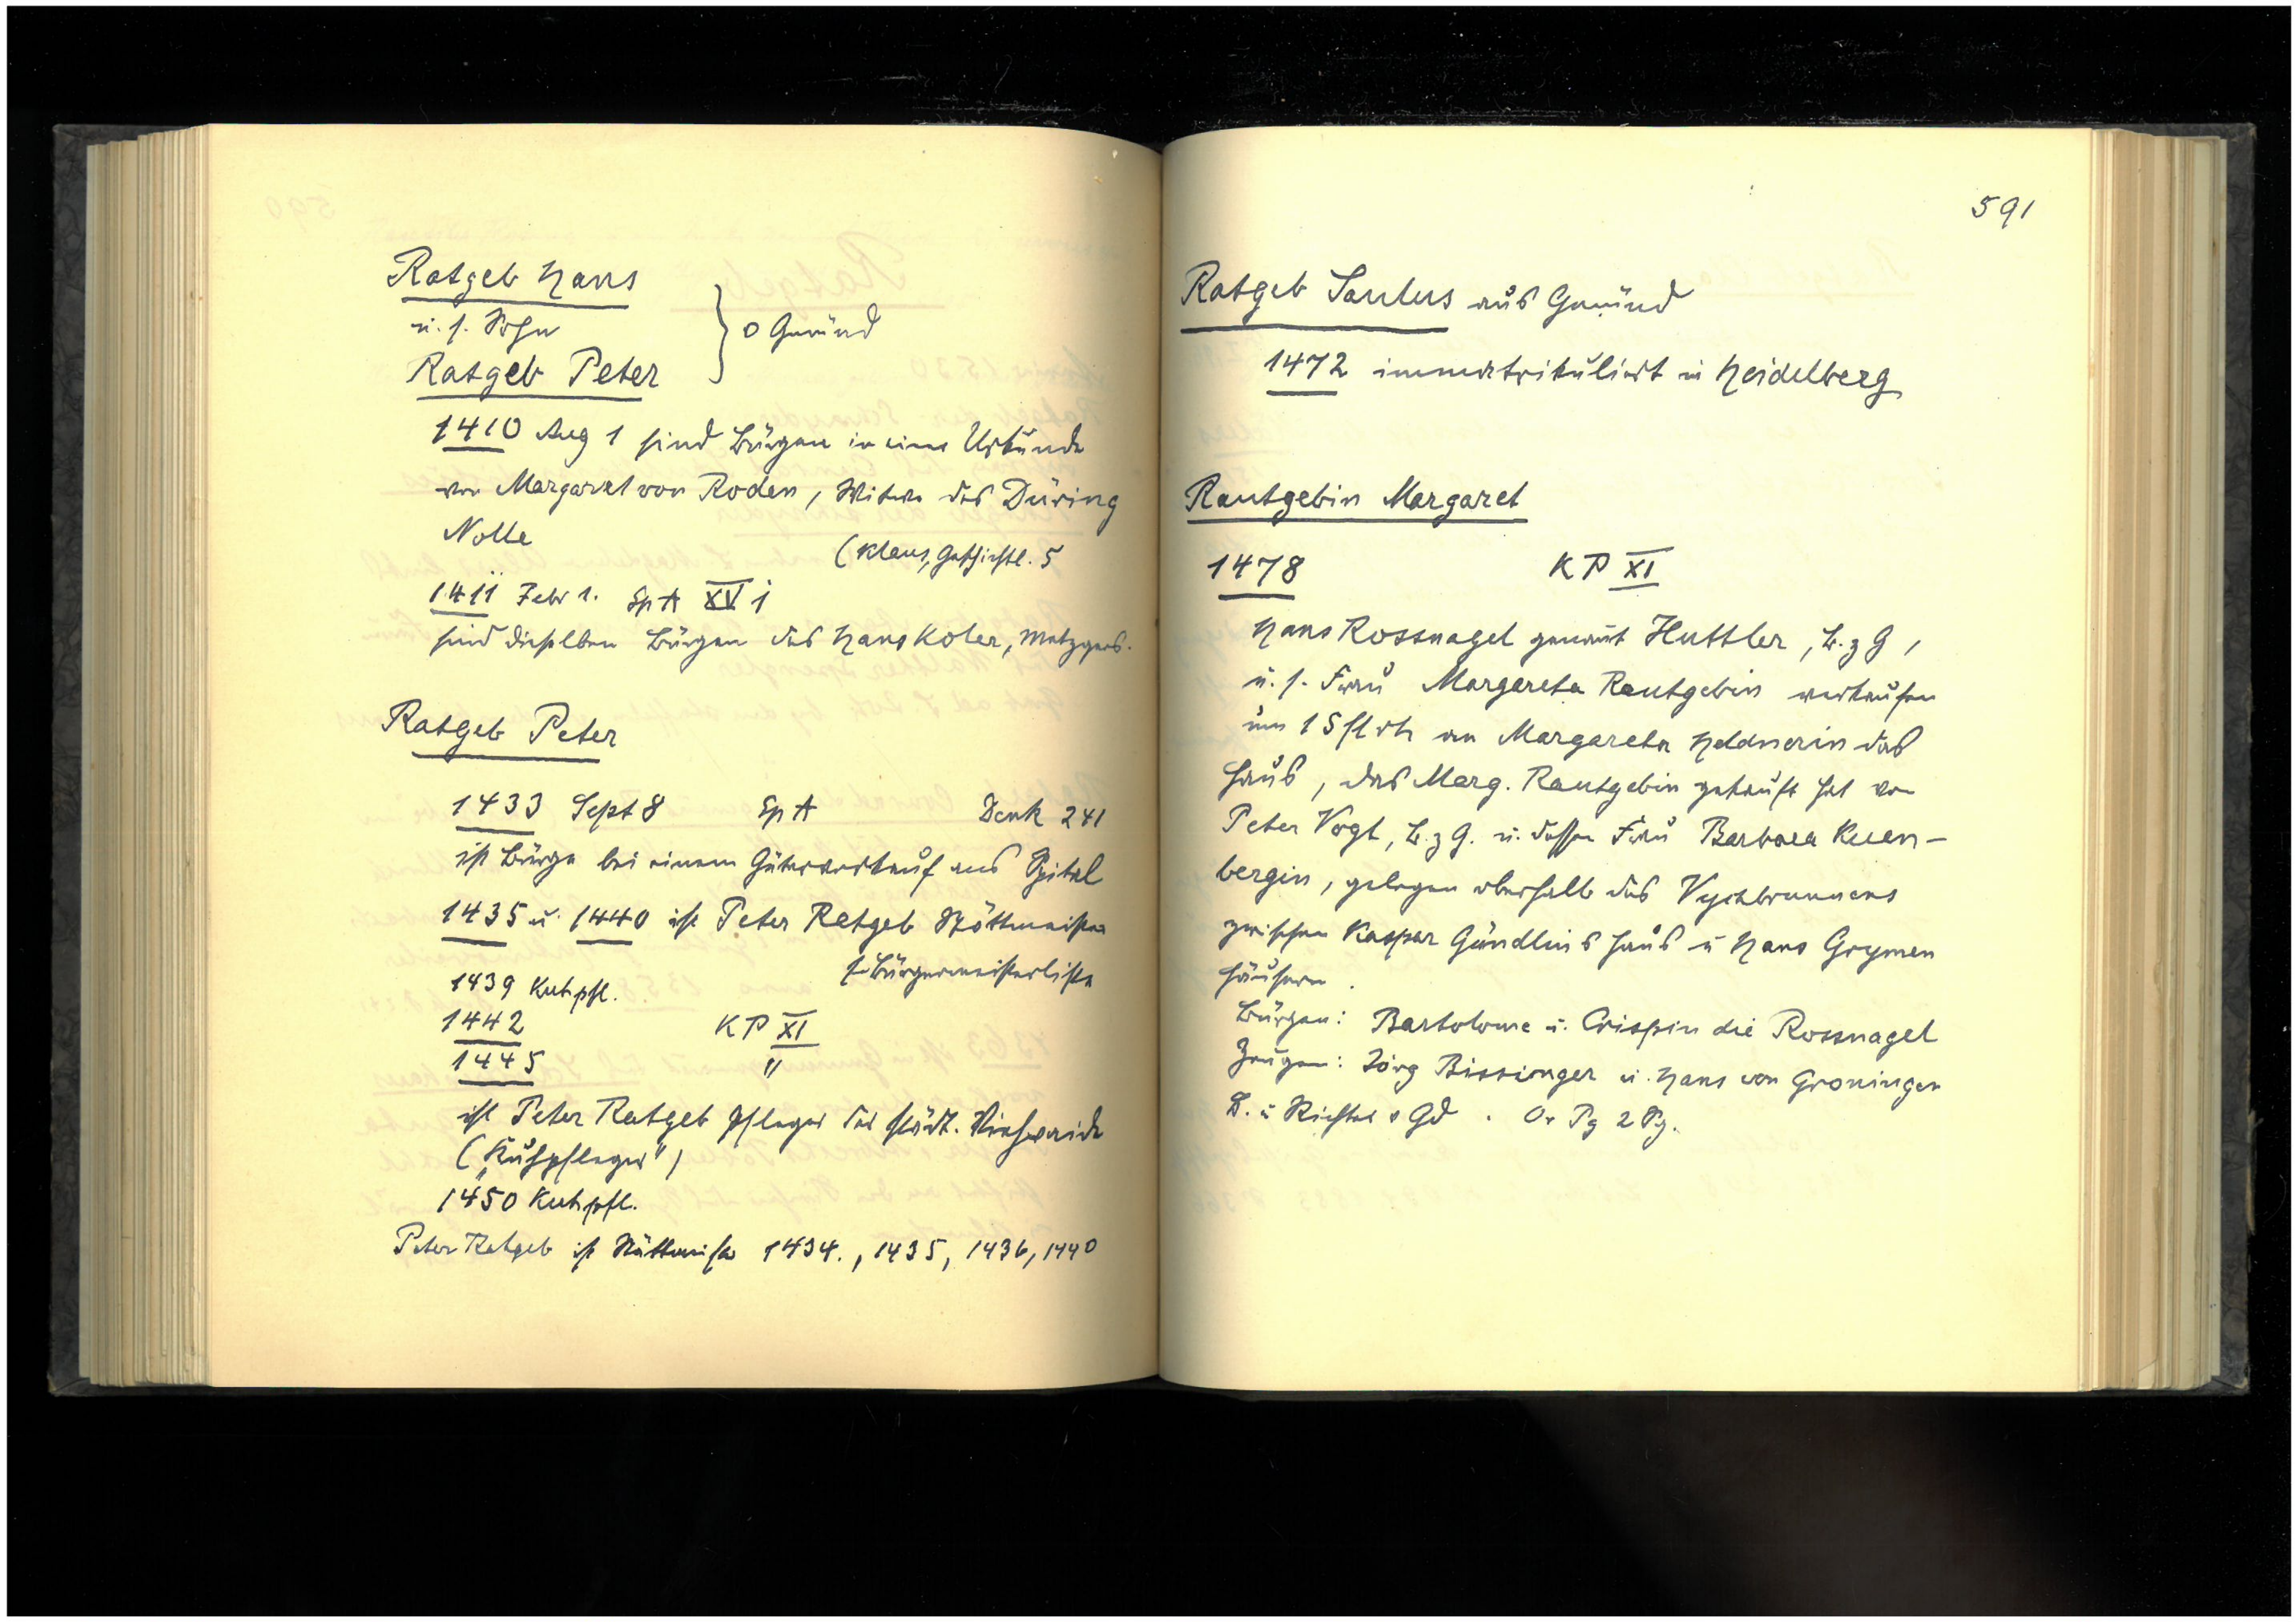 Ratgeb Hans
u. s. Sohn
Ratgeb Peter
} v Gmünd
1410 Aug 1 sind Bürgen in einer Urkunde
von Margaret von Roden, Witwe des Düring
Nolle
(Klaus, Geschichtl. 5
1411 Febr 1. Sp A XV i
sind dieselben Bürgen des Hans Koler, Metzgers.
Ratgeb Peter
1433 Sept 8 Sp A Denk 241
ist Bürge bei einem Güterverkauf ans Spital
1435 u. 1440 ist Peter Ratgeb Stättmeister
s. Bürgermeisterliste
1439 Kuhpfl.
1442 KP XI
1445 "
ist Peter Ratgeb Pfleger der städt. Viehweide
("Kuhpfleger")
1450 Kuhpfl.
Peter Ratgeb ist Stättmeister 1434., 1435, 1436, 1440
591
Ratgeb Paulus aus Gmünd
1472 immatrikuliert in Heidelberg
Rautgebin Margaret
1478 KP XI
Hans Rossnagel genannt Huttler, B. z G,
u. s. Frau Margareta Rautgebin verkaufen
um 15 fl rh an Margareta Heldnerin das
Haus, das Marg. Rautgebin gekauft hat von
Peter Vogt, B. z G. u. dessen Frau Barbara Kuen-
bergin, gelegen oberhalb des Vychbrunnens
zwischen Kaspar Gündlins Haus u Hans Grymen
Häusern.
Bürgen: Bartolome u. Crispin die Rossnagel
Zeugen: Jörg Bissinger u. Hans von Groningen
B. u Richter v Gd. Or Pg 2 Sg.